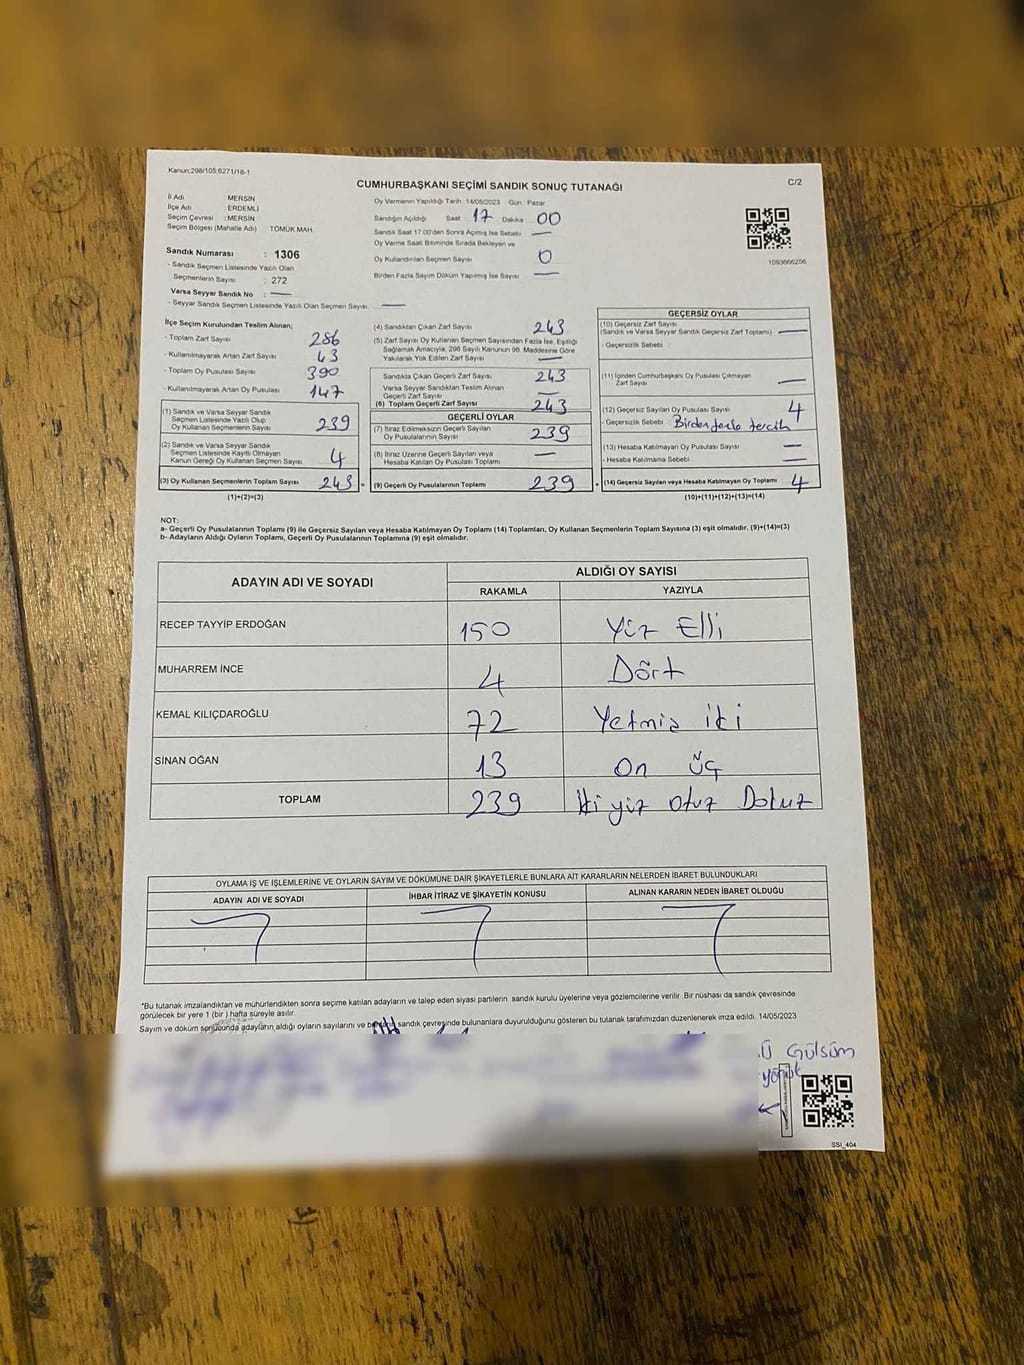 Kanun;298/105;6271/18-1
C/2
CUMHURBAŞKANI SEÇİMİ SANDIK SONUÇ TUTANAĞI
İl Adı : MERSİN
İlçe Adı : ERDEMLİ
Seçim Çevresi : MERSİN
Seçim Bölgesi (Mahalle Adı) TÖMÜK MAH.
Sandık Numarası : 1306
- Sandık Seçmen Listesinde Yazılı Olan
Seçmenlerin Sayısı : 272
Varsa Seyyar Sandık No : —
- Seyyar Sandık Seçmen Listesinde Yazılı Olan Seçmen Sayısı —
Oy Vermenin Yapıldığı Tarih :14/05/2023 Gün : Pazar
Sandığın Açıldığı Saat 17 Dakika 00
Sandık Saat 17:00'den Sonra Açılmış İse Sebebi —
Oy Verme Saati Bitiminde Sırada Bekleyen ve
Oy Kullandırılan Seçmen Sayısı 0
Birden Fazla Sayım Döküm Yapılmış İse Sayısı —
1093666256
İlçe Seçim Kurulundan Teslim Alınan;
- Toplam Zarf Sayısı 286
- Kullanılmayarak Artan Zarf Sayısı 43
- Toplam Oy Pusulası Sayısı 390
- Kullanılmayarak Artan Oy Pusulası 147
(1) Sandık ve Varsa Seyyar Sandık
Seçmen Listesinde Yazılı Olup
Oy Kullanan Seçmenlerin Sayısı 239
(2) Sandık ve Varsa Seyyar Sandık
Seçmen Listesinde Kayıtlı Olmayan
Kanun Gereği Oy Kullanan Seçmen Sayısı 4
(3) Oy Kullanan Seçmenlerin Toplam Sayısı 243
(1)+(2)=(3)
(4) Sandıktan Çıkan Zarf Sayısı 243
(5) Zarf Sayısı Oy Kullanan Seçmen Sayısından Fazla İse, Eşitliği
Sağlamak Amacıyla, 298 Sayılı Kanunun 98. Maddesine Göre
Yakılarak Yok Edilen Zarf Sayısı —
Sandıkta Çıkan Geçerli Zarf Sayısı 243
Varsa Seyyar Sandıktan Teslim Alınan
Geçerli Zarf Sayısı —
(6) Toplam Geçerli Zarf Sayısı 243
GEÇERLİ OYLAR
(7) İtiraz Edilmeksizin Geçerli Sayılan
Oy Pusulalarının Sayısı 239
(8) İtiraz Üzerine Geçerli Sayılan veya
Hesaba Katılan Oy Pusulası Toplamı —
(9) Geçerli Oy Pusulalarının Toplamı 239
GEÇERSİZ OYLAR
(10) Geçersiz Zarf Sayısı
(Sandık ve Varsa Seyyar Sandık Geçersiz Zarf Toplamı) —
- Geçersizlik Sebebi :
(11) İçinden Cumhurbaşkanı Oy Pusulası Çıkmayan
Zarf Sayısı —
(12) Geçersiz Sayılan Oy Pusulası Sayısı 4
- Geçersizlik Sebebi : Birden fazla tercih
(13) Hesaba Katılmayan Oy Pusulası Sayısı —
- Hesaba Katılmama Sebebi : —
(14) Geçersiz Sayılan veya Hesaba Katılmayan Oy Toplamı 4
(10)+(11)+(12)+(13)=(14)
NOT:
a- Geçerli Oy Pusulalarının Toplamı (9) ile Geçersiz Sayılan veya Hesaba Katılmayan Oy Toplamı (14) Toplamları, Oy Kullanan Seçmenlerin Toplam Sayısına (3) eşit olmalıdır. (9)+(14)=(3)
b- Adayların Aldığı Oyların Toplamı, Geçerli Oy Pusulalarının Toplamına (9) eşit olmalıdır.
ADAYIN ADI VE SOYADI ALDIĞI OY SAYISI
RAKAMLA YAZIYLA
RECEP TAYYİP ERDOĞAN 150 Yüz Elli
MUHARREM İNCE 4 Dört
KEMAL KILIÇDAROĞLU 72 Yetmiş iki
SİNAN OĞAN 13 On üç
TOPLAM 239 İki yüz otuz Dokuz
OYLAMA İŞ VE İŞLEMLERİNE VE OYLARIN SAYIM VE DÖKÜMÜNE DAİR ŞİKAYETLERLE BUNLARA AİT KARARLARIN NELERDEN İBARET BULUNDUKLARI
ADAYIN ADI VE SOYADI İHBAR İTİRAZ VE ŞİKAYETİN KONUSU ALINAN KARARIN NEDEN İBARET OLDUĞU
*Bu tutanak imzalandıktan ve mühürlendikten sonra seçime katılan adayların ve talep eden siyasi partilerin sandık kurulu üyelerine veya gözlemcilerine verilir. Bir nüshası da sandık çevresinde
görülecek bir yere 1 (bir ) hafta süreyle asılır.
Sayım ve döküm sonucunda adayların aldığı oyların sayılarını ve sandık çevresinde bulunanlara duyurulduğunu gösteren bu tutanak tarafımızdan düzenlenerek imza edildi. 14/05/2023
Gülsüm
SSİ_404